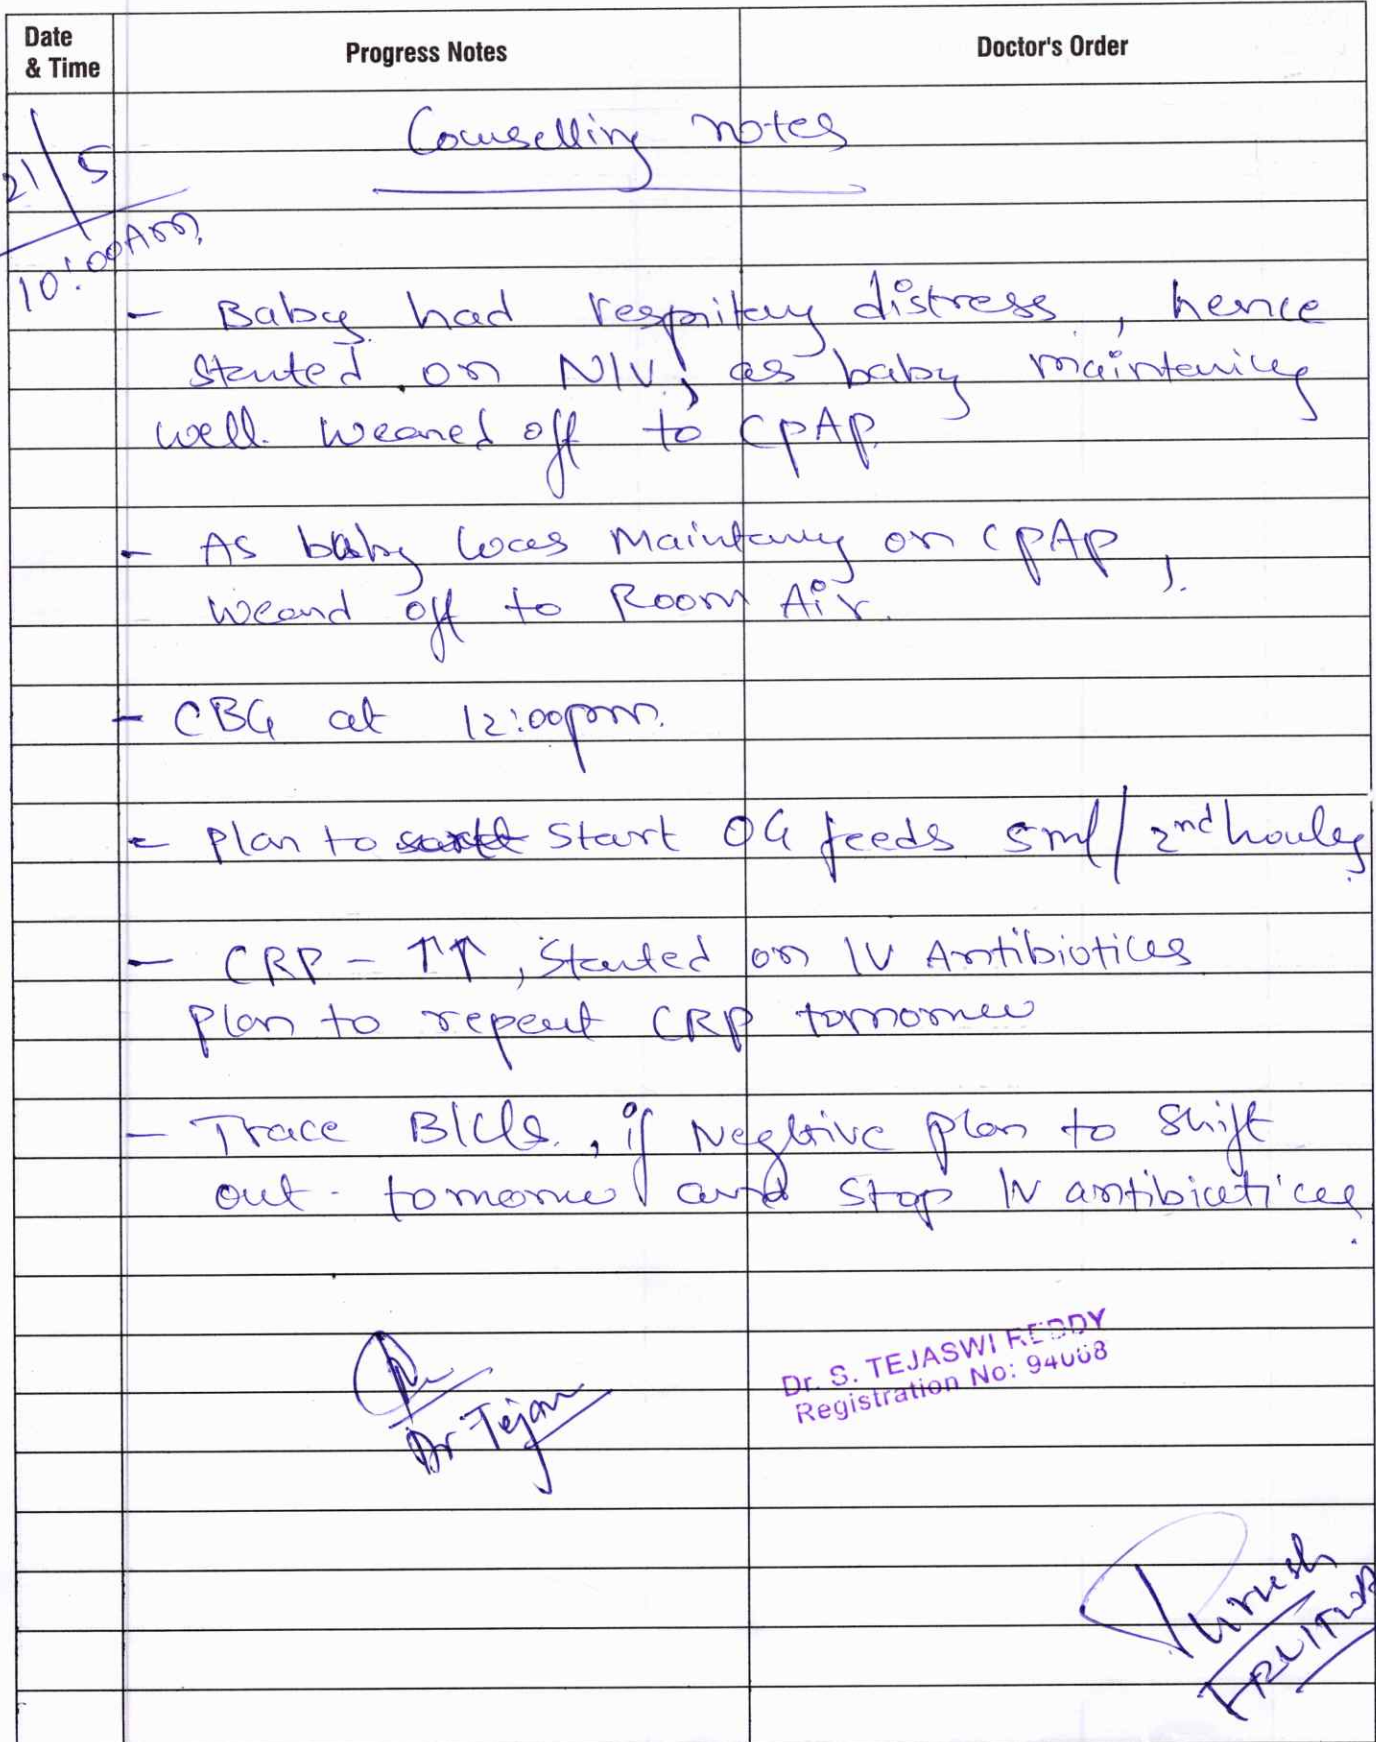 Date & Time
Progress Notes
Doctor's Order
Counselling notes
21/5
10:00 Am
- Baby had respiitery distress, hence
started on NIV; as baby maintening
well. weaned off to CPAP.
- As baby was maintaing on CPAP,
weand off to Room Air.
- CBG at 12:00pm.
- Plan to start OG feeds 5ml/2nd hourly
- CRP - ↑↑, started on IV Antibiotics
Plan to repeat CRP tomorrow
- Trace Bl C/s, if Negtive plan to shift
out - tomorrow and stop IV antibiotices.
Dr. S. TEJASWI REDDY
Registration No: 94008
Dr Tejas